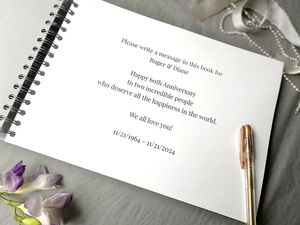 Please write a message in this book for
Roger & Diane
Happy 60th Anniversary
to two incredible people
who deserve all the happiness in the world.
We all love you!
11/21/1964 ~ 11/21/2024